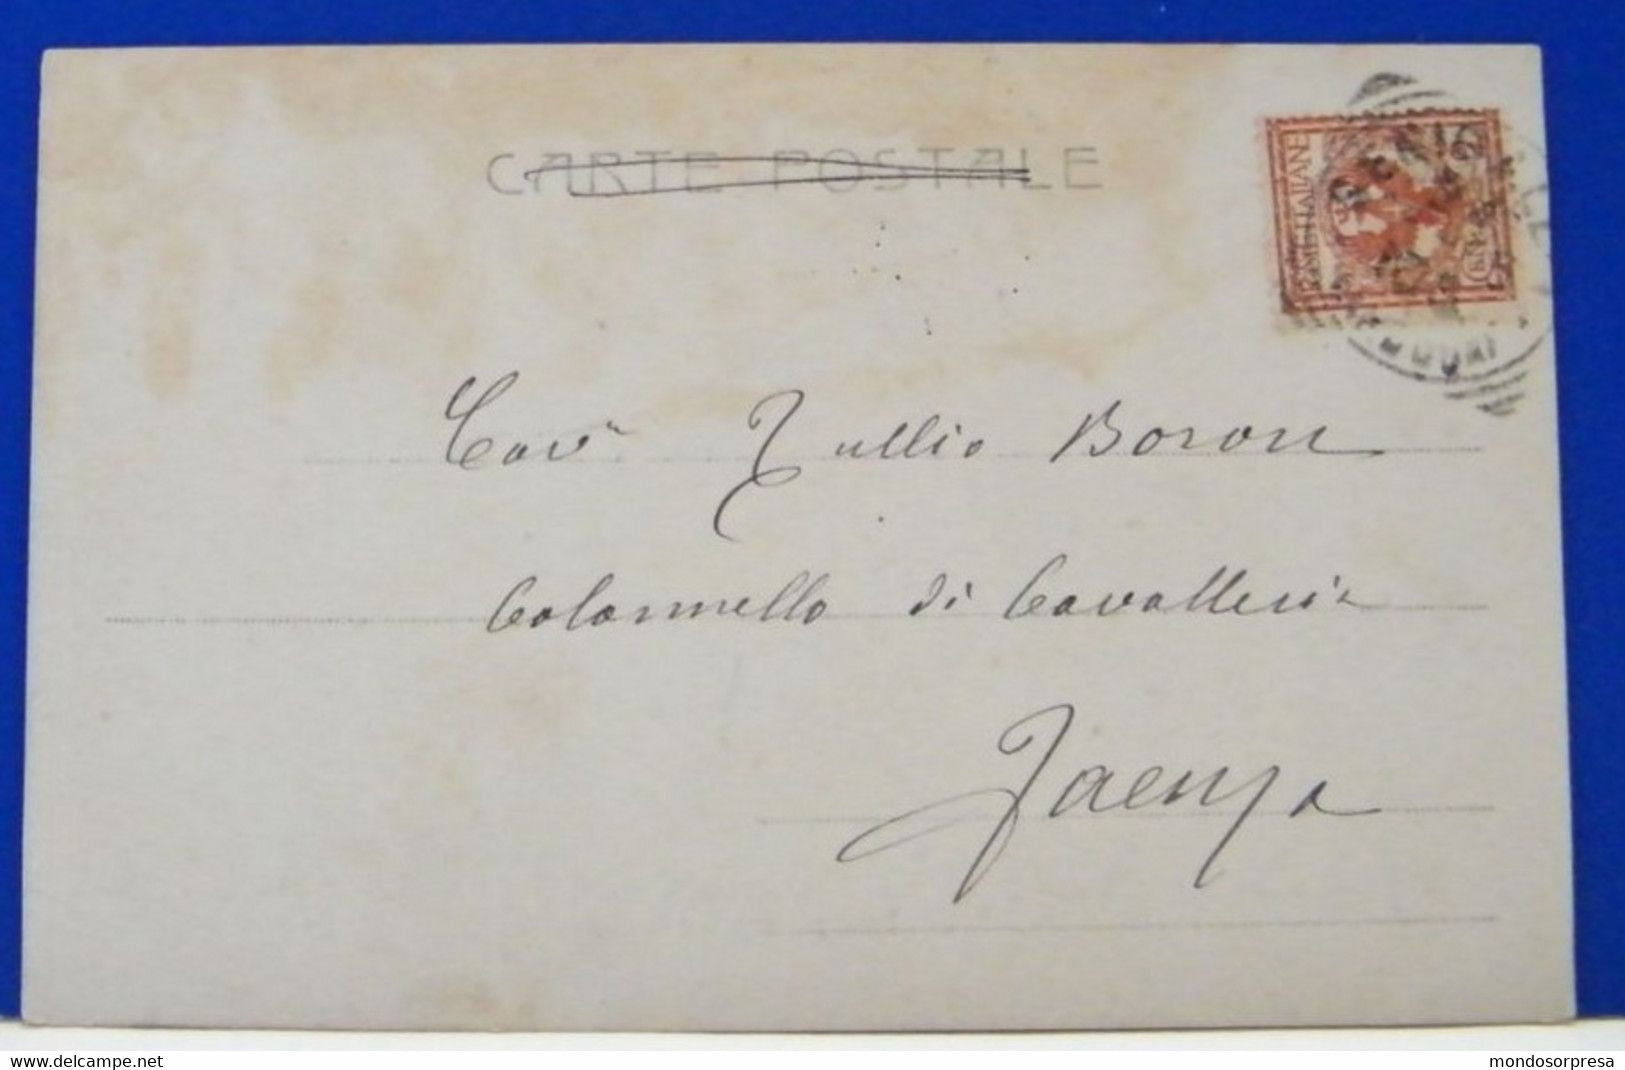 CARTE POSTALE
POSTE ITALIANE
Cav. Tullio Boron
Colonnello di Cavalleria
Faenza
www.delcampe.net
mondosorpresa